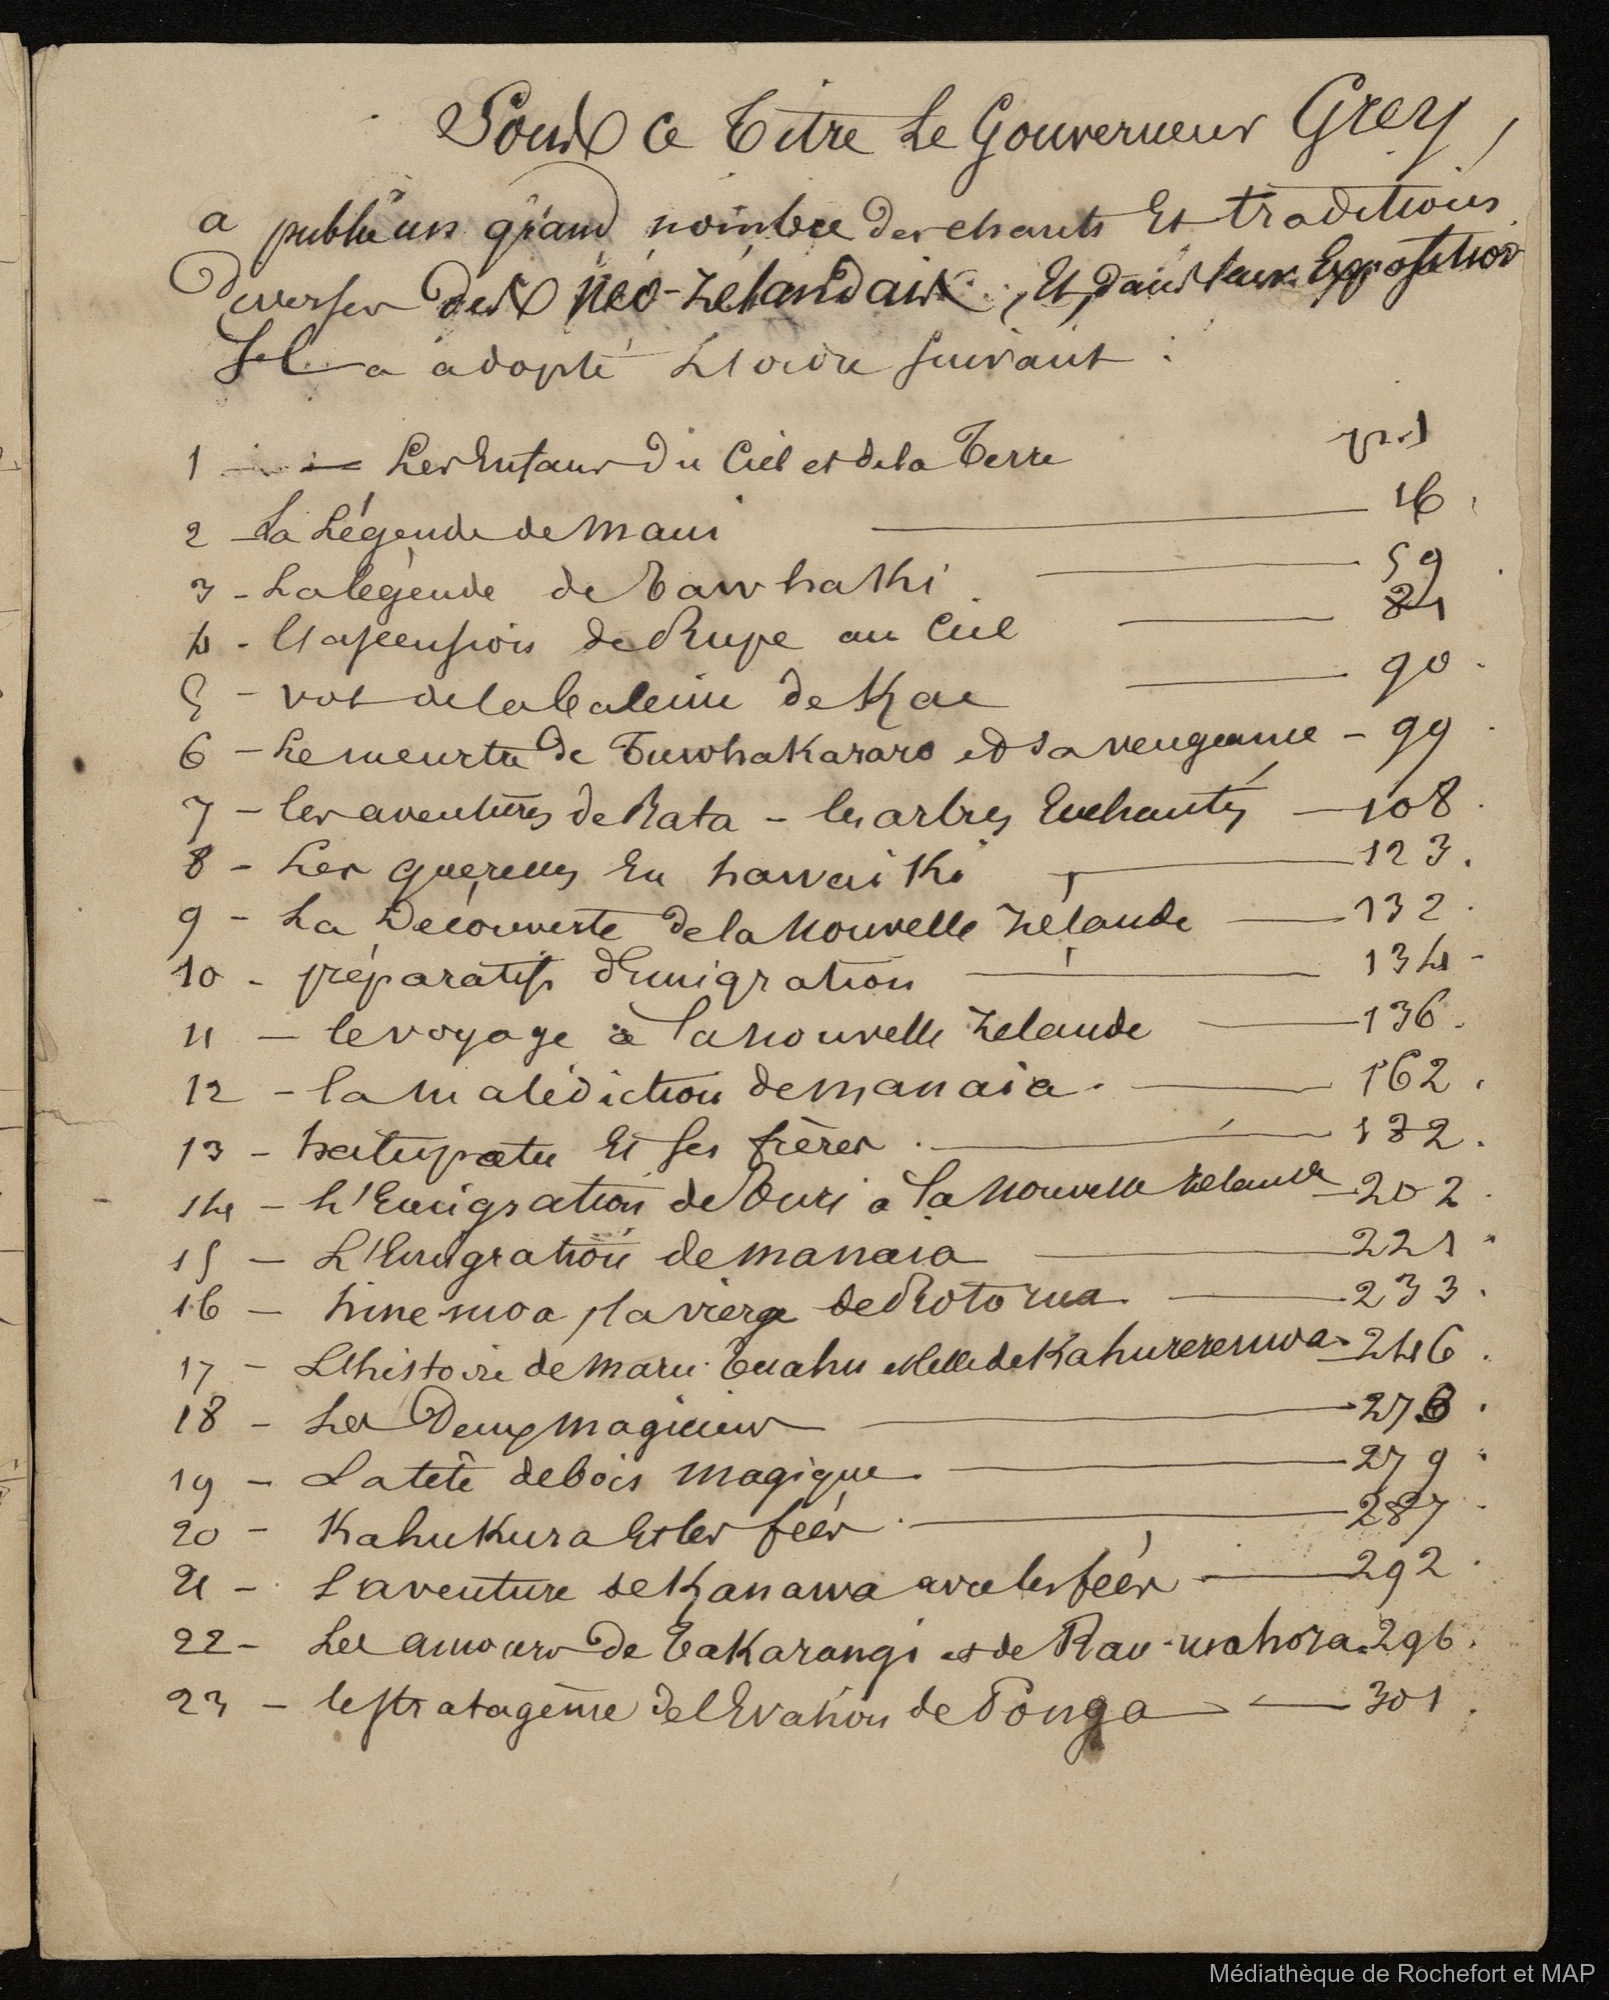 Sous ce titre Le Gouverneur Grey,
a publié un grand nombre des chants Et traditions
diverses des Néo-Zélandais, Et, dans leur Exposition
Il a adopté L'ordre suivant :
1 — Les Enfans du Ciel et de la Terre
2 - La Légende de Maui — 16.
3 - La légende de Tawhaki — 59.
4 - L'ascension de Rupe au Ciel — 81
5 - vol de la baleine de Kae — 90.
6 - Le meurtre de Tuwhakararo et sa vengeance - 99.
7 - les aventures de Rata - les arbres Enchantés — 108.
8 - Les querelles En hawaiki — 123.
9 - La Découverte de la Nouvelle Zélande — 132.
10 - préparatifs d'Emigration — 134 -
11 - le voyage à la Nouvelle Zelande — 136.
12 - la malédiction de manaia. — 162.
13 - hatupatu Et ses frères. — 182.
14 - L'Emigration de Turi à la Nouvelle Zelande — 202.
15 - L'Emigration de manaia — 221.
16 - hine-moa, la vierge de Rotorua — 233.
17 - L'histoire de Maru-Tuahu et celle de Kahureremoa - 246.
18 - Les Deux magiciens — 273.
19 - La tête de bois magique. — 279.
20 - Kahukura Et les fées. — 287.
21 - L'aventure de Kanawa avec les fées — 292.
22 - Les amours de Takarangi et de Rau-mahora. 296.
23 - le stratagème de l'Evasion de Ponga — 301.
Médiathèque de Rochefort et MAP